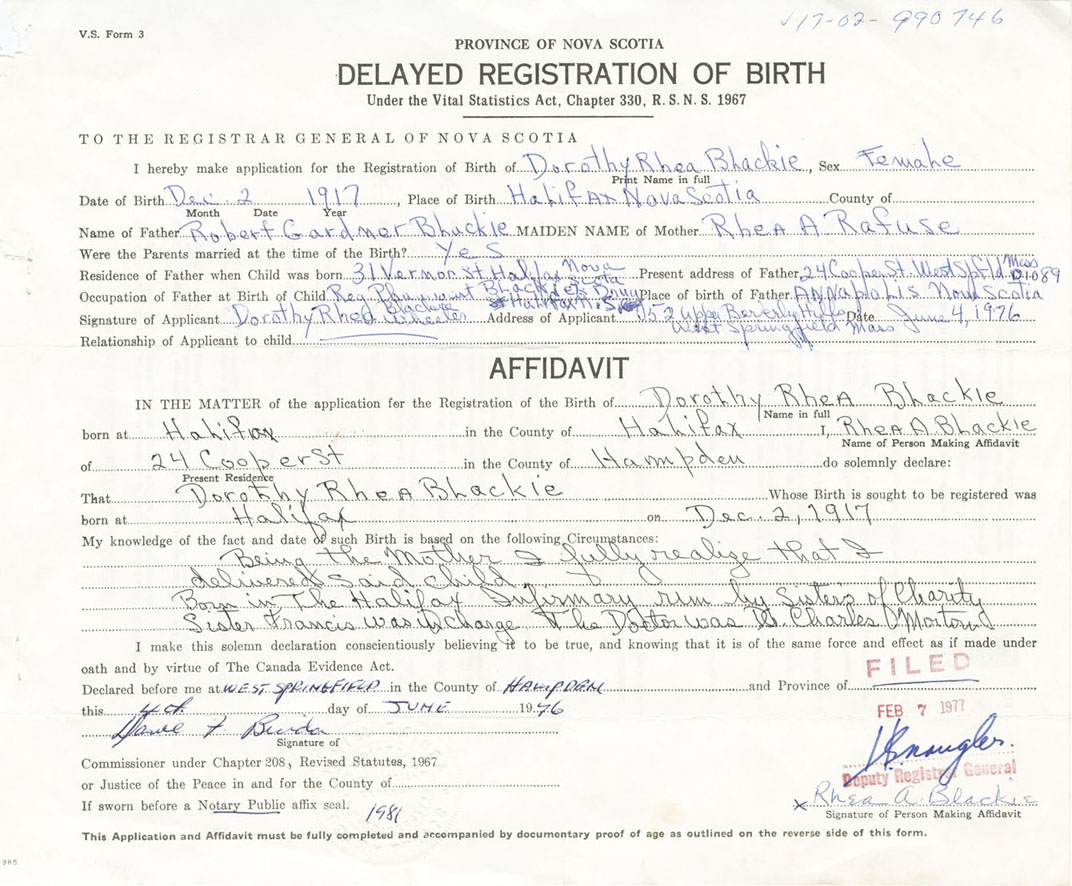 V.S. Form 3
17-02-990746
PROVINCE OF NOVA SCOTIA
DELAYED REGISTRATION OF BIRTH
Under the Vital Statistics Act, Chapter 330, R.S.N.S. 1967
TO THE REGISTRAR GENERAL OF NOVA SCOTIA
I hereby make application for the Registration of Birth of Dorothy Rhea Blackie, Sex Female
Print Name in full
Date of Birth Dec 2 1917, Place of Birth Halifax Nova Scotia County of
Month Date Year
Name of Father Robert Gardner Blackie MAIDEN NAME of Mother Rhea A Rafuse
Were the Parents married at the time of the Birth? Yes
Residence of Father when Child was born 31 Vernon St. Halifax Nova Scotia Present address of Father 24 Cooper St. West Spfld Mass 01089
Occupation of Father at Birth of Child Reg. Blackie's Halifax N.S. Place of birth of Father Annapolis Nova Scotia
Signature of Applicant Dorothy Rhea Blackie Address of Applicant 52 Upper Beverly Hills West Springfield Mass Date June 4, 1976
Relationship of Applicant to child
AFFIDAVIT
IN THE MATTER of the application for the Registration of the Birth of Dorothy Rhea Blackie
Name in full
born at Halifax in the County of Halifax I, Rhea A Blackie
Name of Person Making Affidavit
of 24 Cooper St in the County of Hampden do solemnly declare:
Present Residence
That Dorothy Rhea Blackie Whose Birth is sought to be registered was
born at Halifax on Dec. 2, 1917
My knowledge of the fact and date of such Birth is based on the following Circumstances:
Being the Mother I fully realize that I
delivered said child.
Born in The Halifax Infirmary run by Sisters of Charity
Sister Francis was in charge The Doctor was Dr. Charles Morton
I make this solemn declaration conscientiously believing it to be true, and knowing that it is of the same force and effect as if made under
oath and by virtue of The Canada Evidence Act.
FILED
Declared before me at WEST SPRINGFIELD in the County of HAMPDEN and Province of
this 4th day of JUNE 1976
FEB 7 1977
Signature of
Commissioner under Chapter 208, Revised Statutes, 1967
Deputy Registrar General
or Justice of the Peace in and for the County of
Rhea A. Blackie
If sworn before a Notary Public affix seal. 1981
Signature of Person Making Affidavit
This Application and Affidavit must be fully completed and accompanied by documentary proof of age as outlined on the reverse side of this form.
385